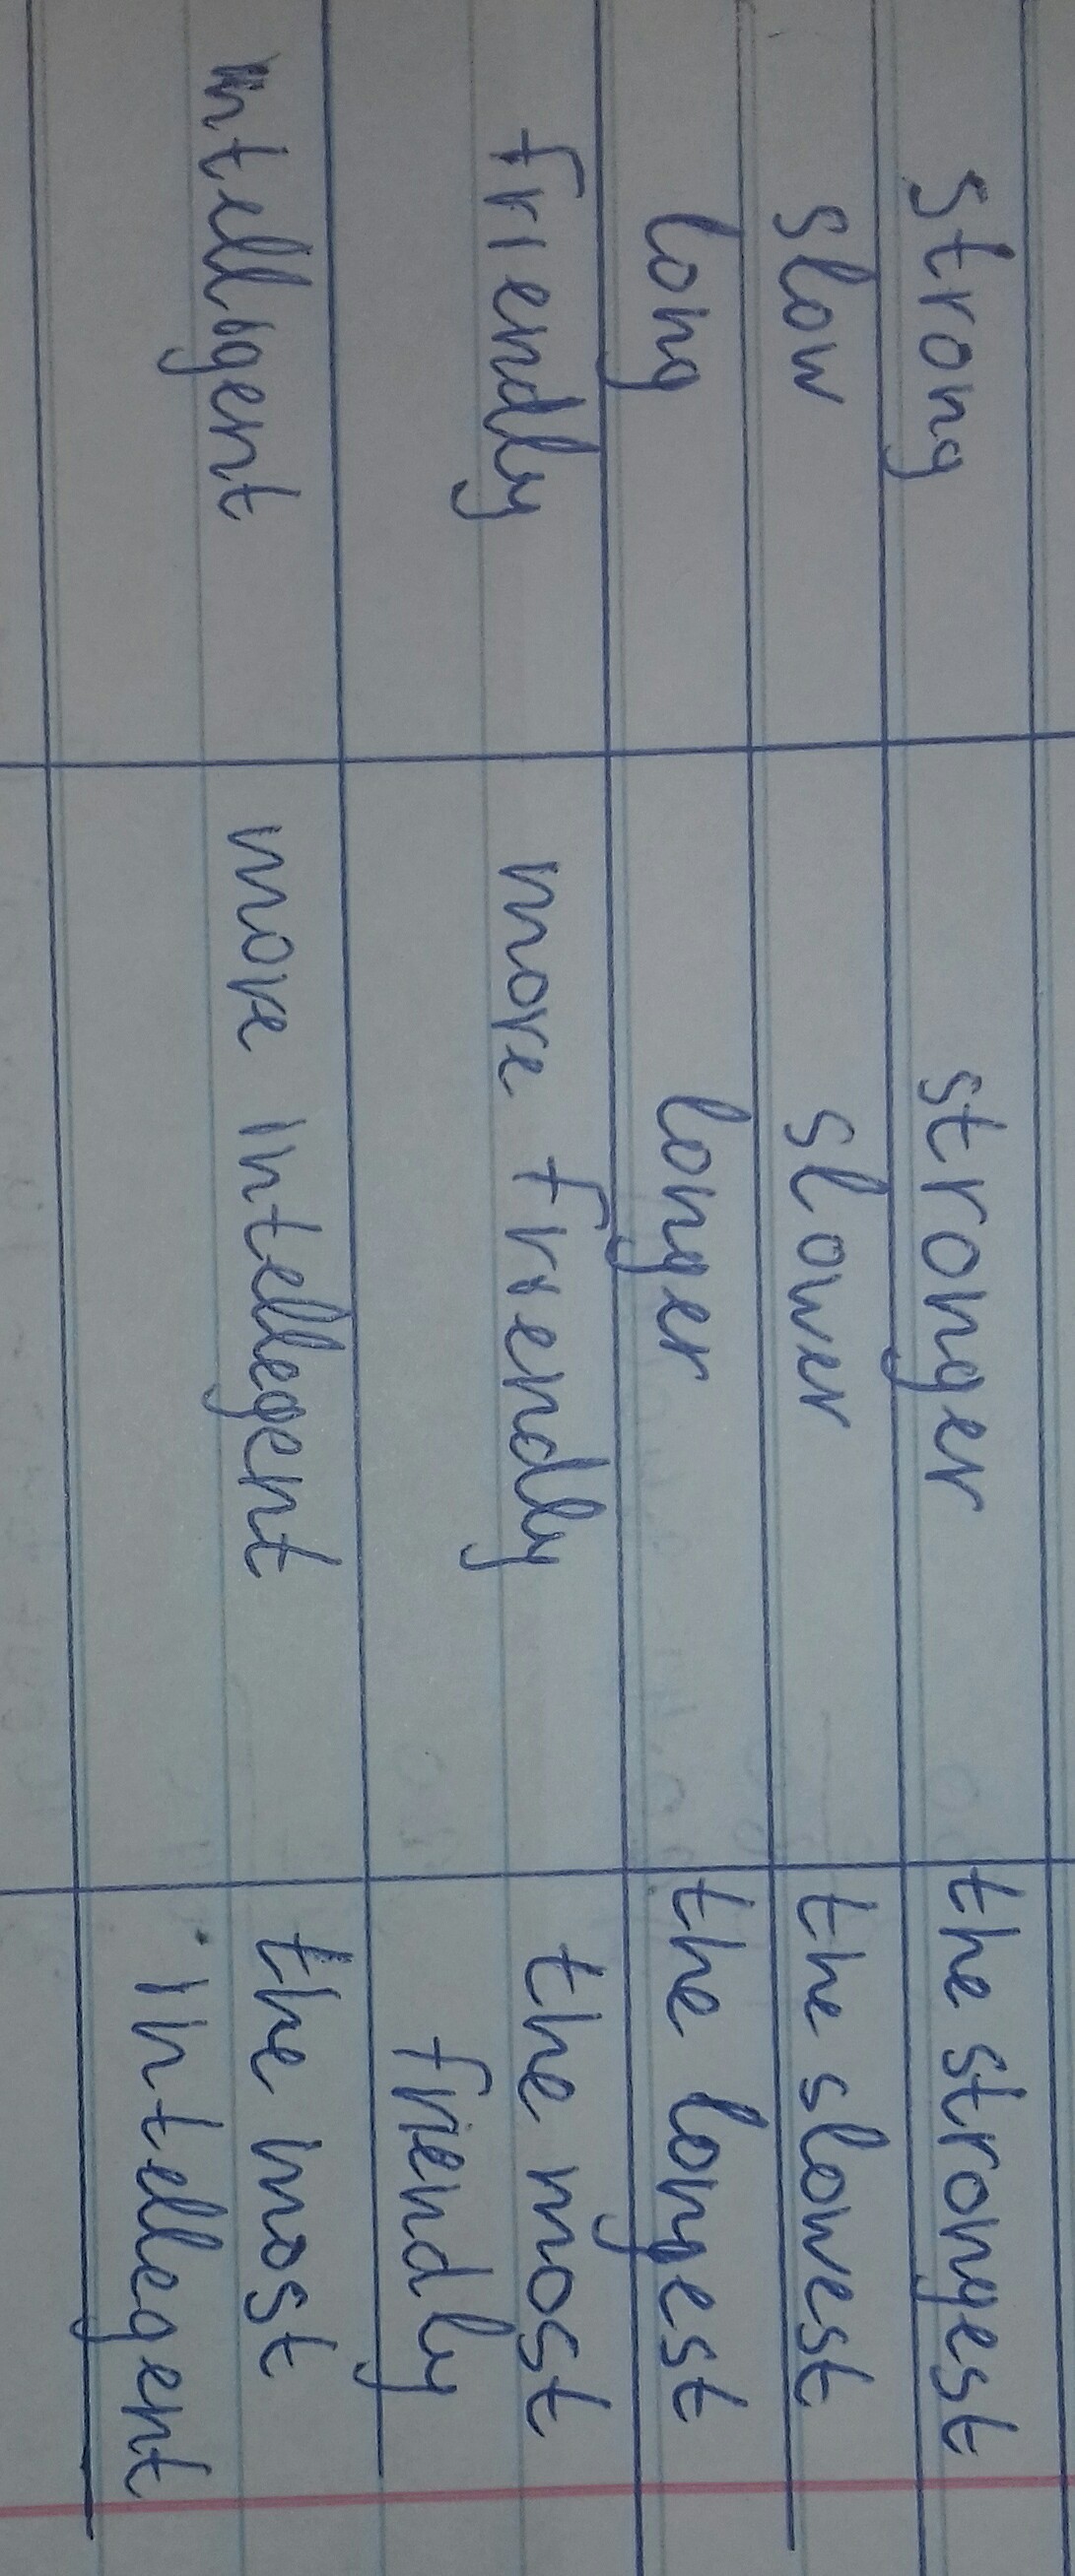 strong stronger the strongest
slow slower the slowest
long longer the longest
friendly more friendly the most
friendly
intelligent more intellegent the most
intellegent